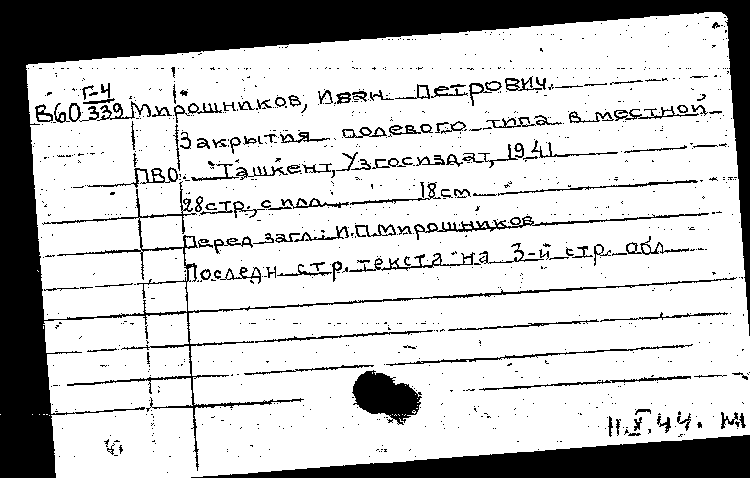 Г-4
В60 339 Мирошников, Иван Петрович.
Закрытия полевого типа в местной
ПВО. Ташкент, Узгосиздат, 1941
28стр., с илл. 18см.
Перед загл.: И.П.Мирошников
Последн. стр. текста на 3-й стр. обл.
11.X.44.